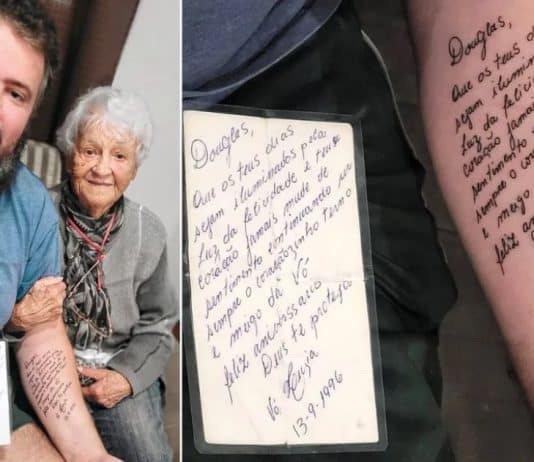 Douglas,
Que os teus dias
sejam iluminados pela
luz da felicidade e teu
coração jamais mude de
sentimento continuando ser
sempre o coraçãozinho terno
e meigo da Vó
feliz
Deus te proteja
Vó:
13-9-1996
Douglas,
Que os teus
sejam ilumina
luz da felici
coração jamais
sentimento
sempre o
e meigo
feliz